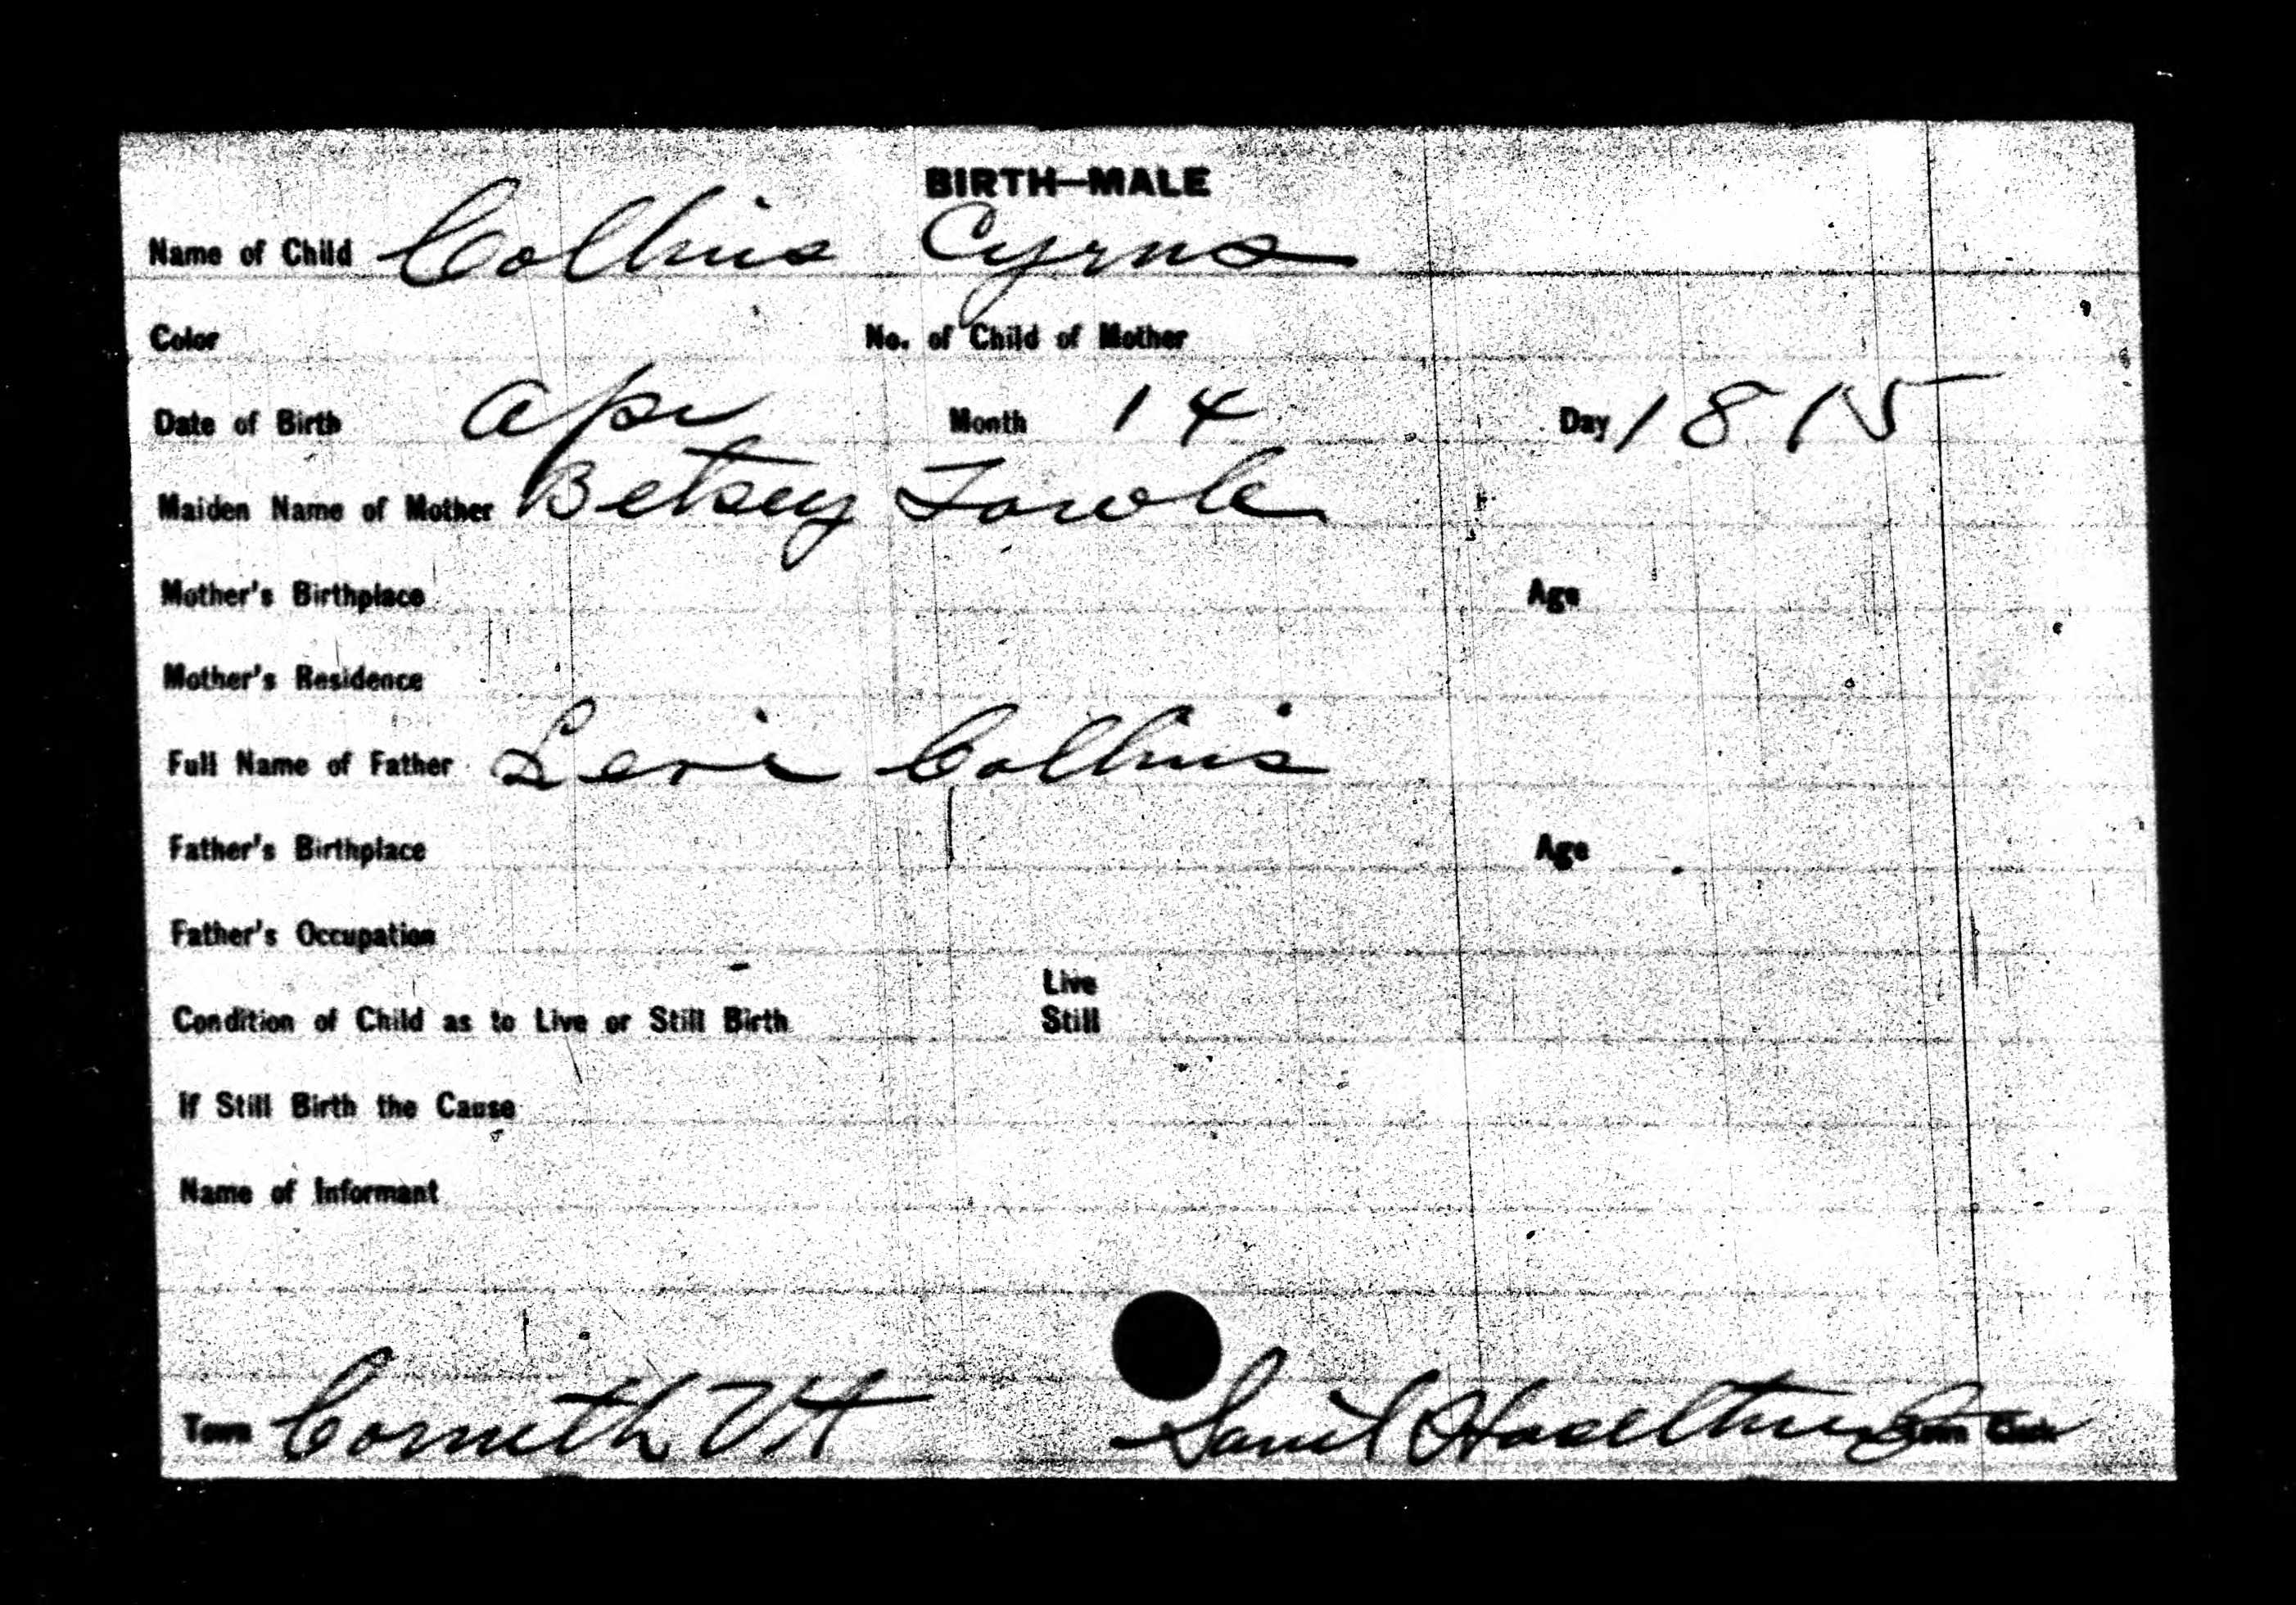 BIRTH—MALE
Name of Child Collins Cyrus
Color No. of Child of Mother
Date of Birth Apr Month 14 Day 1815
Maiden Name of Mother Betsey Towle
Mother's Birthplace Age
Mother's Residence
Full Name of Father Levi Collins
Father's Birthplace Age
Father's Occupation
Live
Condition of Child as to Live or Still Birth Still
If Still Birth the Cause
Name of Informant
Town Corinth Vt Saml Haseltine Town Clerk